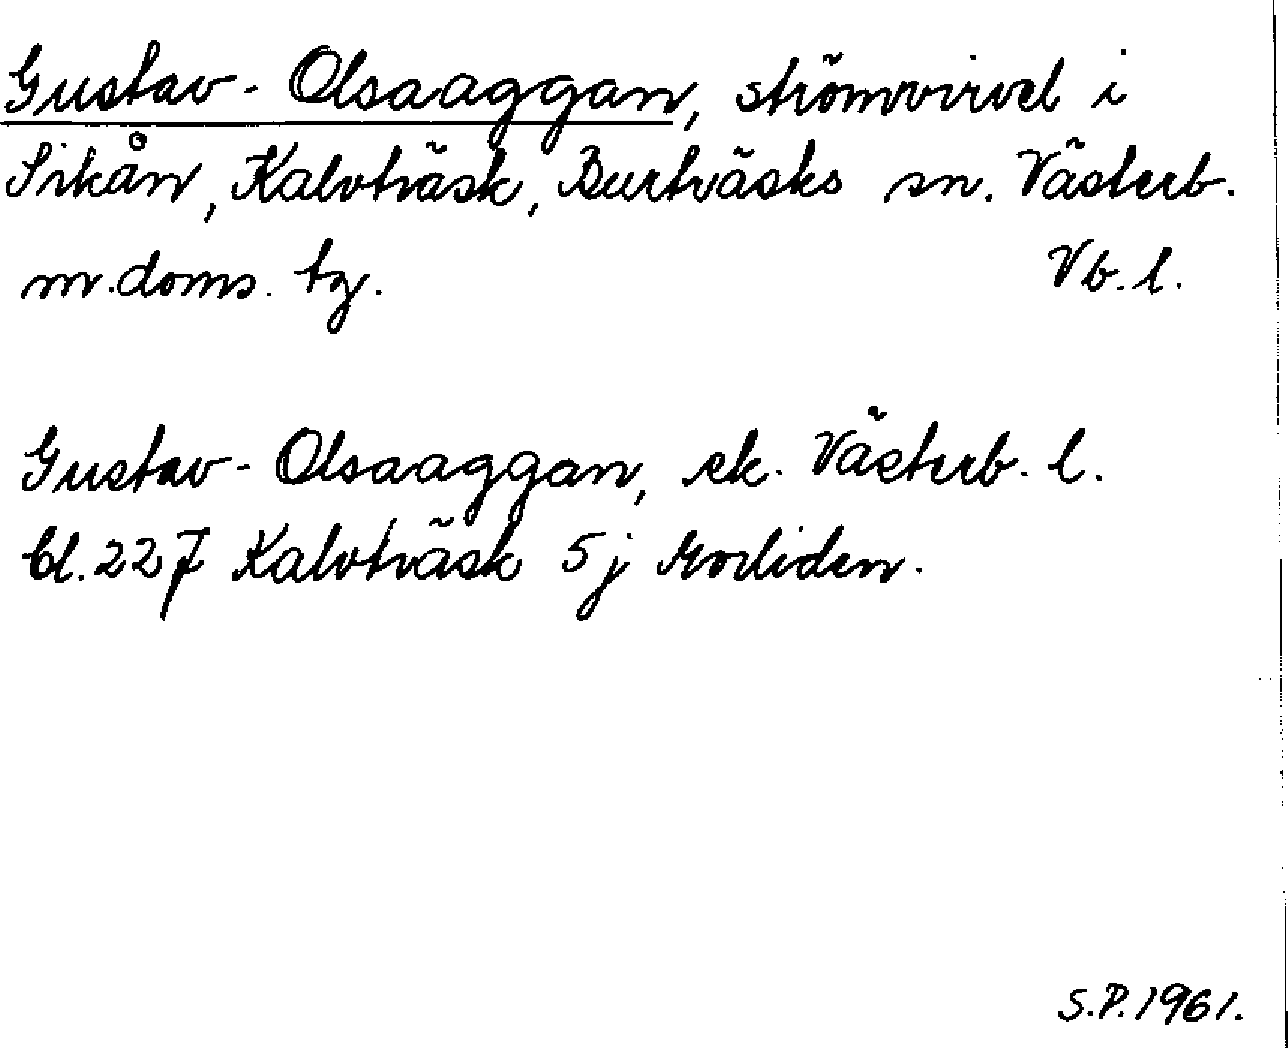 Gustav-Olsaaggan, strömvirvel i
Sikån, Kalvträsk, Burträsks sn. Västerb.
m. doms. tg. Vb. l.
Gustav-Olsaaggan, ek. Västerb. l.
bl. 227 Kalvträsk 5j Morliden.
S.P. 1961.